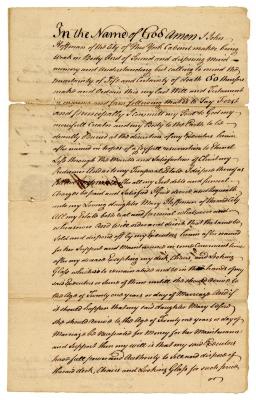 In the Name of God Amen I John
Hoffman of the City of New York Cabinet maker being
Weak in Body But of Sound and disposing Mind
memory and Understanding but calling to mind the
uncertainty of Life and Certainty of Death Do therefore
make and Ordain this my last Will and Testament
in manner and form following that is to Say First
and principally I commit my Soul to God my
mercifull Creator and my Body to the Earth to be
decently Buried at the discretion of my Executors herein
after named in hopes of a joyfull resurrection to Eternal
Life through the Merits and Satisfaction of Christ my
Redeemer And as to my Temporal Estate I dispose thereof as
all my Just debts and funeral
Charges be paid and Satisfied I give devise and bequeath
unto my Loving daughter Mary Hoffman
All my Estate both real and personal whatsoever and
wheresoever And I will order and direct that the same be
Sold and disposed of by my Executors herein after named
for her Support and Maintenance in
after my decease Excepting my desk, Chairs and Looking
Glass which is to remain and to be in the hands of my
said Executors or Some of them untill she should arrive
to the Age of Twenty one years or day of Marriage And if
it should happen that my said daughter Mary before
she should arrive to the Age of Twenty one years or day of
Marriage be necessitated for Money for her Maintenance
and Support then my will is that my said Executors
have full power and Authority to sell and dispose of
the said desk, Chairs and Looking Glass for such price
or